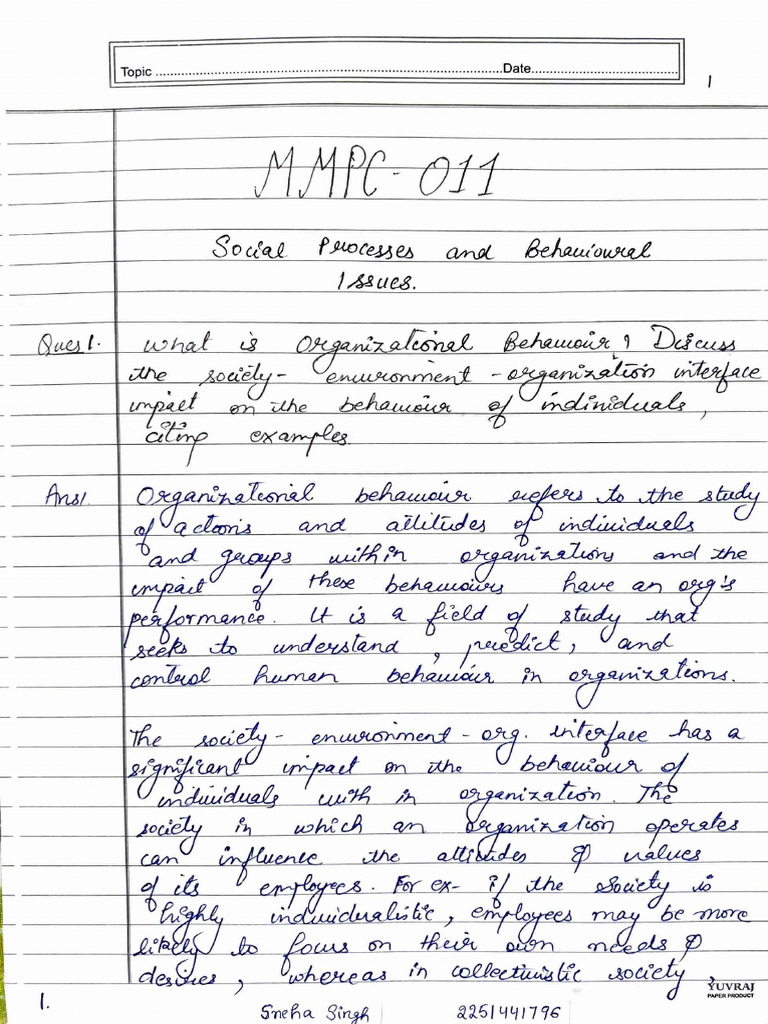 Topic ........ Date........
1
MMPC-011
Social Processes and Behavioural
Issues.
Ques1. What is Organizational Behaviour? Discuss
the society- environment -organization interface
impact on the behaviour of individuals,
citing examples
Ans1. Organizational behaviour refers to the study
of actions and attitudes of individuals
and groups within organizations and the
impact of these behaviours have an org's
performance. It is a field of study that
seeks to understand, predict, and
control human behaviour in organizations.
The society- environment -org. interface has a
significant impact on the behaviour of
individuals with in organization. The
society in which an organization operates
can influence the attitudes & values
of its employees. For ex- if the society is
highly individualistic, employees may be more
likely to focus on their own needs &
desires, whereas in collectivistic society,
YUVRAJ
PAPER PRODUCT
1. Sneha Singh 2251441796